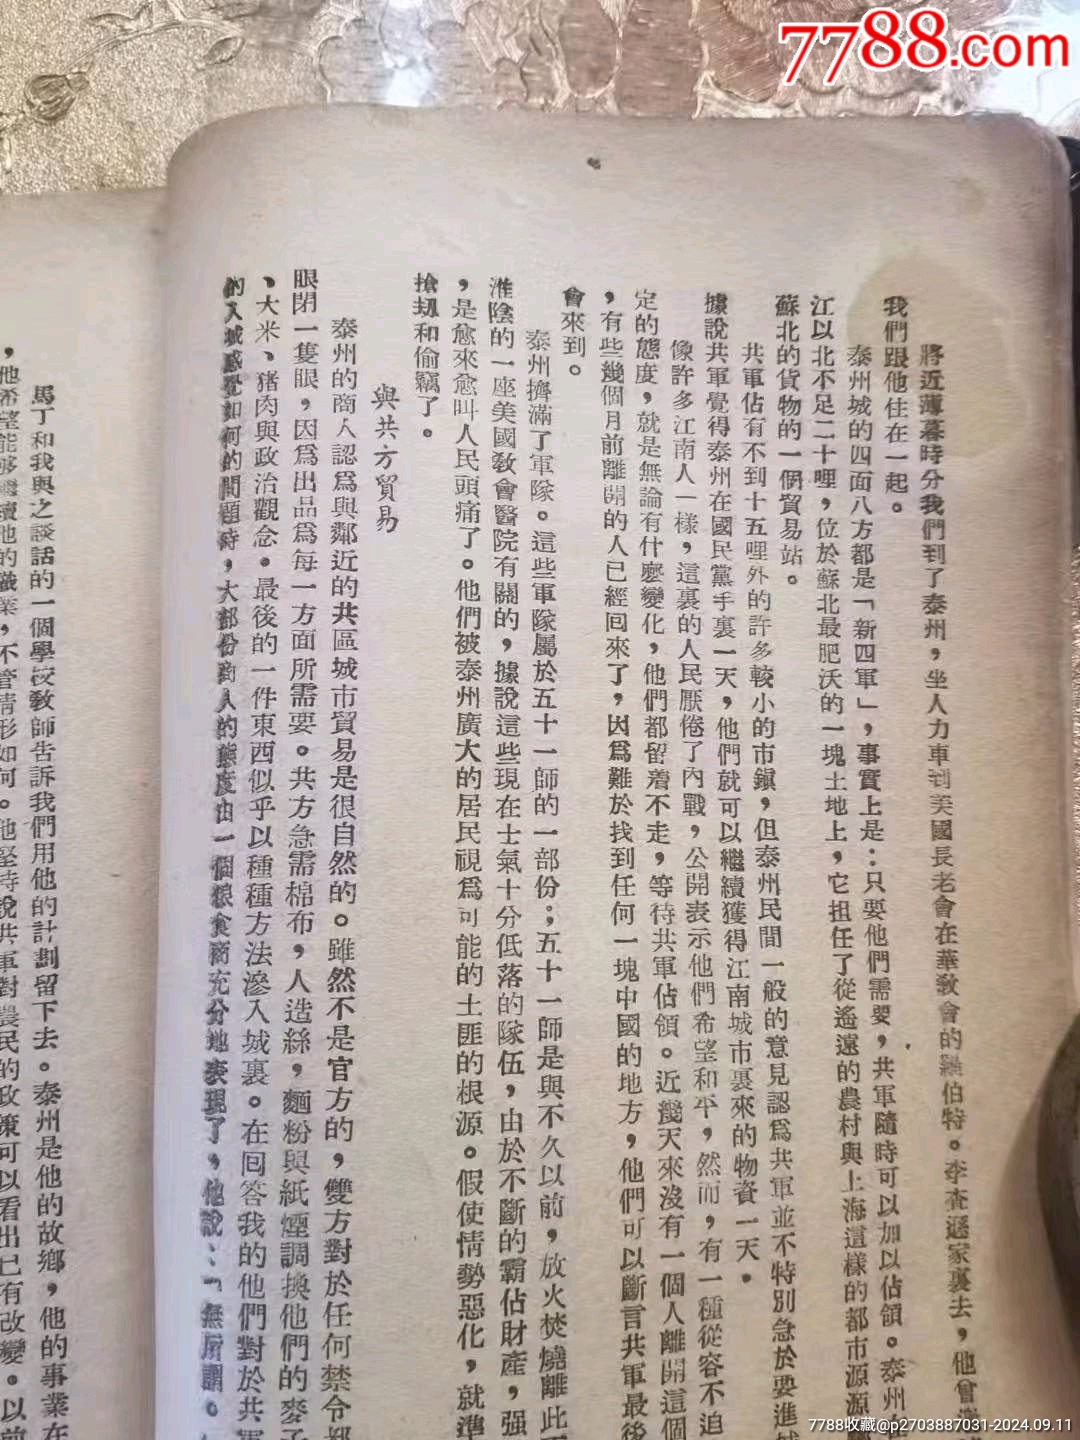 7788.com
將近薄暮時分我們到了泰州，坐人力車到美國長老會在華敎會的羅伯特。李查遜家裏去，他會
我們跟他住在一起。
泰州城的四面八方都是「新四軍」，事實上是：只要他們需要，共軍隨時可以加以佔領。泰州在
江以北不足二十哩，位於蘇北最肥沃的一塊土地上，它担任了從遙遠的農村與上海這樣的都市源源
蘇北的貨物的一個貿易站。
共軍佔有不到十五哩外的許多較小的市鎭，但泰州民間一般的意見認爲共軍並不特別急於要進城
據說共軍覺得泰州在國民黨手裏一天，他們就可以繼續獲得江南城市裏來的物資一天。
像許多江南人一樣，這裏的人民厭倦了內戰，公開表示他們希望和平，然而，有一種從容不迫
定的態度，就是無論有什麼變化，他們都留着不走，等待共軍佔領。近幾天來沒有一個人離開這個
，有些幾個月前離開的人已經回來了，因爲難於找到任何一塊中國的地方，他們可以斷言共軍最後
會來到。
泰州擠滿了軍隊。這些軍隊屬於五十一師的一部份；五十一師是與不久以前，放火焚燒離此
淮陰的一座美國敎會醫院有關的，據說這些現在士氣十分低落的隊伍，由於不斷的霸佔財產，强
，是愈來愈叫人民頭痛了。他們被泰州廣大的居民視爲可能的土匪的根源。假使情勢惡化，就準
搶刼和偷竊了。
與共方貿易
泰州的商人認爲與鄰近的共區城市貿易是很自然的。雖然不是官方的，雙方對於任何禁令都
眼閉一隻眼，因爲出品爲每一方面所需要。共方急需棉布，人造絲，麵粉與紙煙調換他們的麥子
、大米、猪肉與政治觀念。最後的一件東西似乎以種種方法滲入城裏。在囘答我的他們對於共軍
的入城感覺如何的問題時，大部份商人的態度由一個粮食商充分地表現了，他說：「無所謂。
馬丁和我與之談話的一個學校敎師告訴我們用他的計劃留下去。泰州是他的故鄉，他的事業在
，他希望能够繼續他的職業，不管情形如何。他堅持說共軍對農民的政策可以看出已有改變。以前
7788收藏@p2703887031-2024.09.11